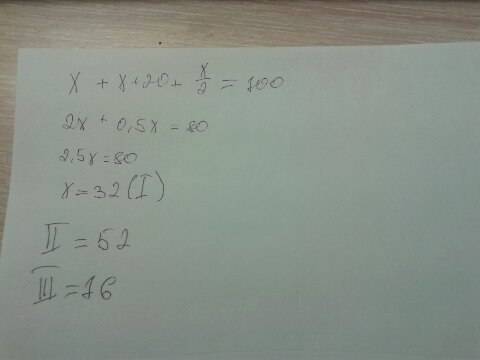 x + x+20+ x/2 = 100
2x + 0,5x = 80
2,5x = 80
x = 32 (I)
II = 52
III = 16